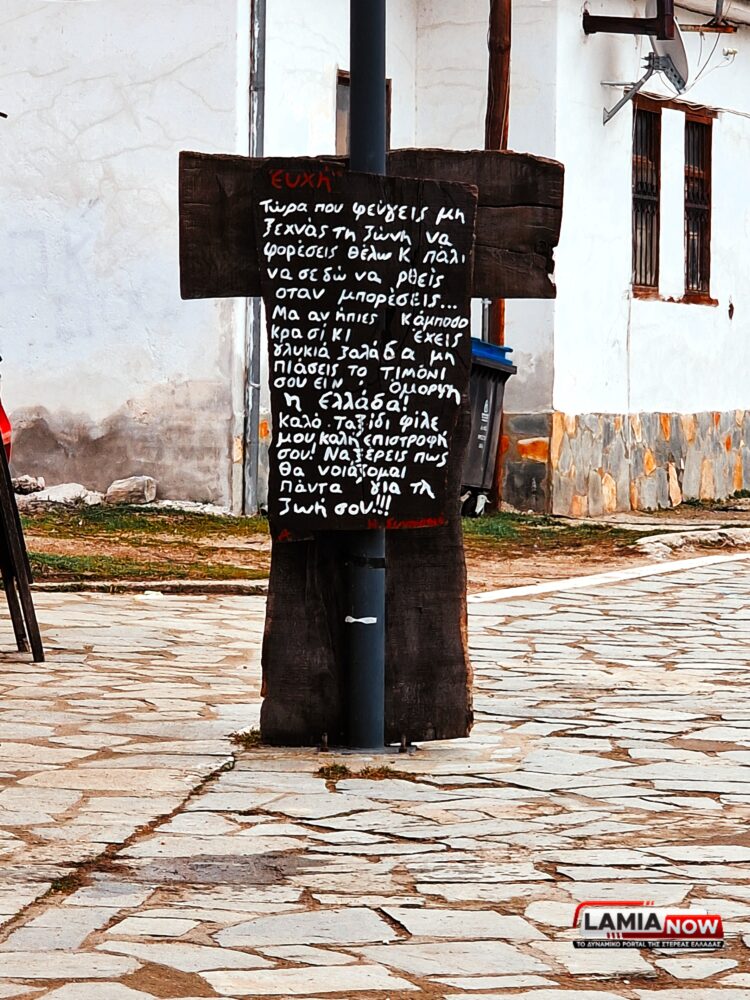 Ευχή
Τώρα που φεύγεις μη
ξεχνάς τη ζώνη να
φορέσεις θέλω κ πάλι
να σε δώ να ρθείς
οταν μπορέσεις...
Μα αν ήπιες κάμποσο
κρασί κι έχεις
γλυκιά ζαλάδα μη
πιάσεις το τιμόνι
σου είν' όμορφη
η Ελλάδα!
καλό ταξίδι φίλε
μου καλή επιστροφή
σου! Να ξέρεις πως
θα νοιάζομαι
πάντα για τη
ζωή σου!!!
LAMIA NOW
ΤΟ ΔΥΝΑΜΙΚΟ PORTAL ΤΗΣ ΣΤΕΡΕΑΣ ΕΛΛΑΔΑΣ